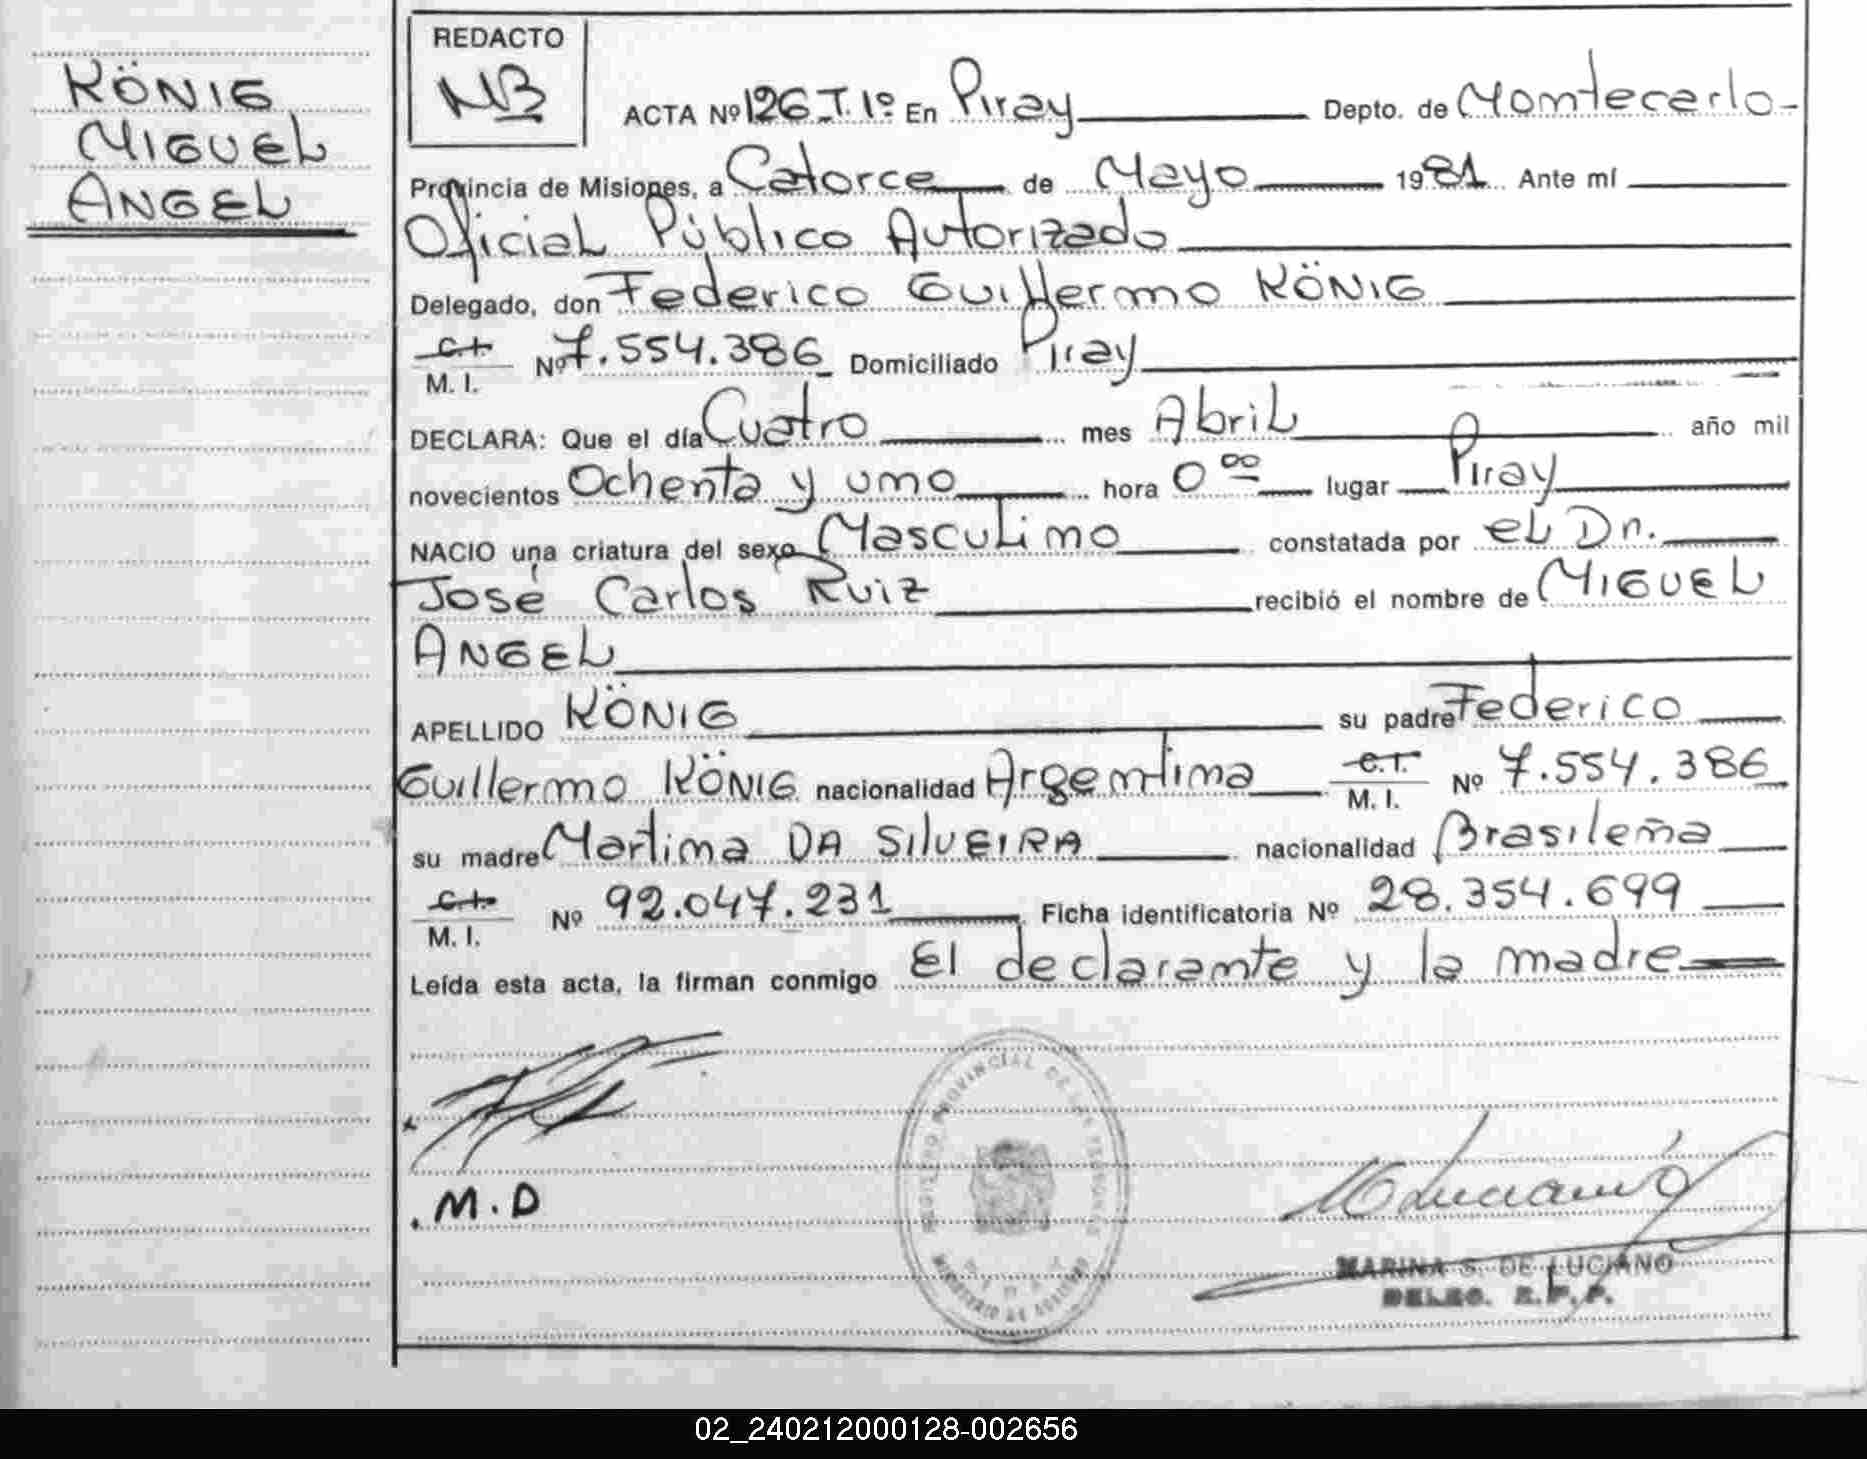 KÖNIG
MIGUEL
ANGEL
REDACTO
NB
ACTA Nº 126 T. 1º En Piray Depto. de Montecarlo
Provincia de Misiones, a Catorce de Mayo 1981 Ante mí
Oficial Público Autorizado
Delegado, don Federico Guillermo KÖNIG
C.I.
M. I. Nº 7.554.386 Domiciliado Piray
DECLARA: Que el día Cuatro mes Abril año mil
novecientos Ochenta y uno hora 0 00 lugar Piray
NACIO una criatura del sexo Masculino constatada por el Dr.
José Carlos Ruiz recibió el nombre de MIGUEL
ANGEL
APELLIDO KÖNIG su padre Federico
Guillermo KÖNIG nacionalidad Argentina C.I. M. I. Nº 7.554.386
su madre Martina DA SILVEIRA nacionalidad Brasileña
C.I.
M. I. Nº 92.047.231 Ficha identificatoria Nº 28.354.699
Leída esta acta, la firman conmigo El declarante y la madre
M.D
REGISTRO PROVINCIAL DE LAS PERSONAS
MINISTERIO DE GOBIERNO
MARINA S. DE LUCIANO
DELEG. R.P.P.
02_240212000128-002656